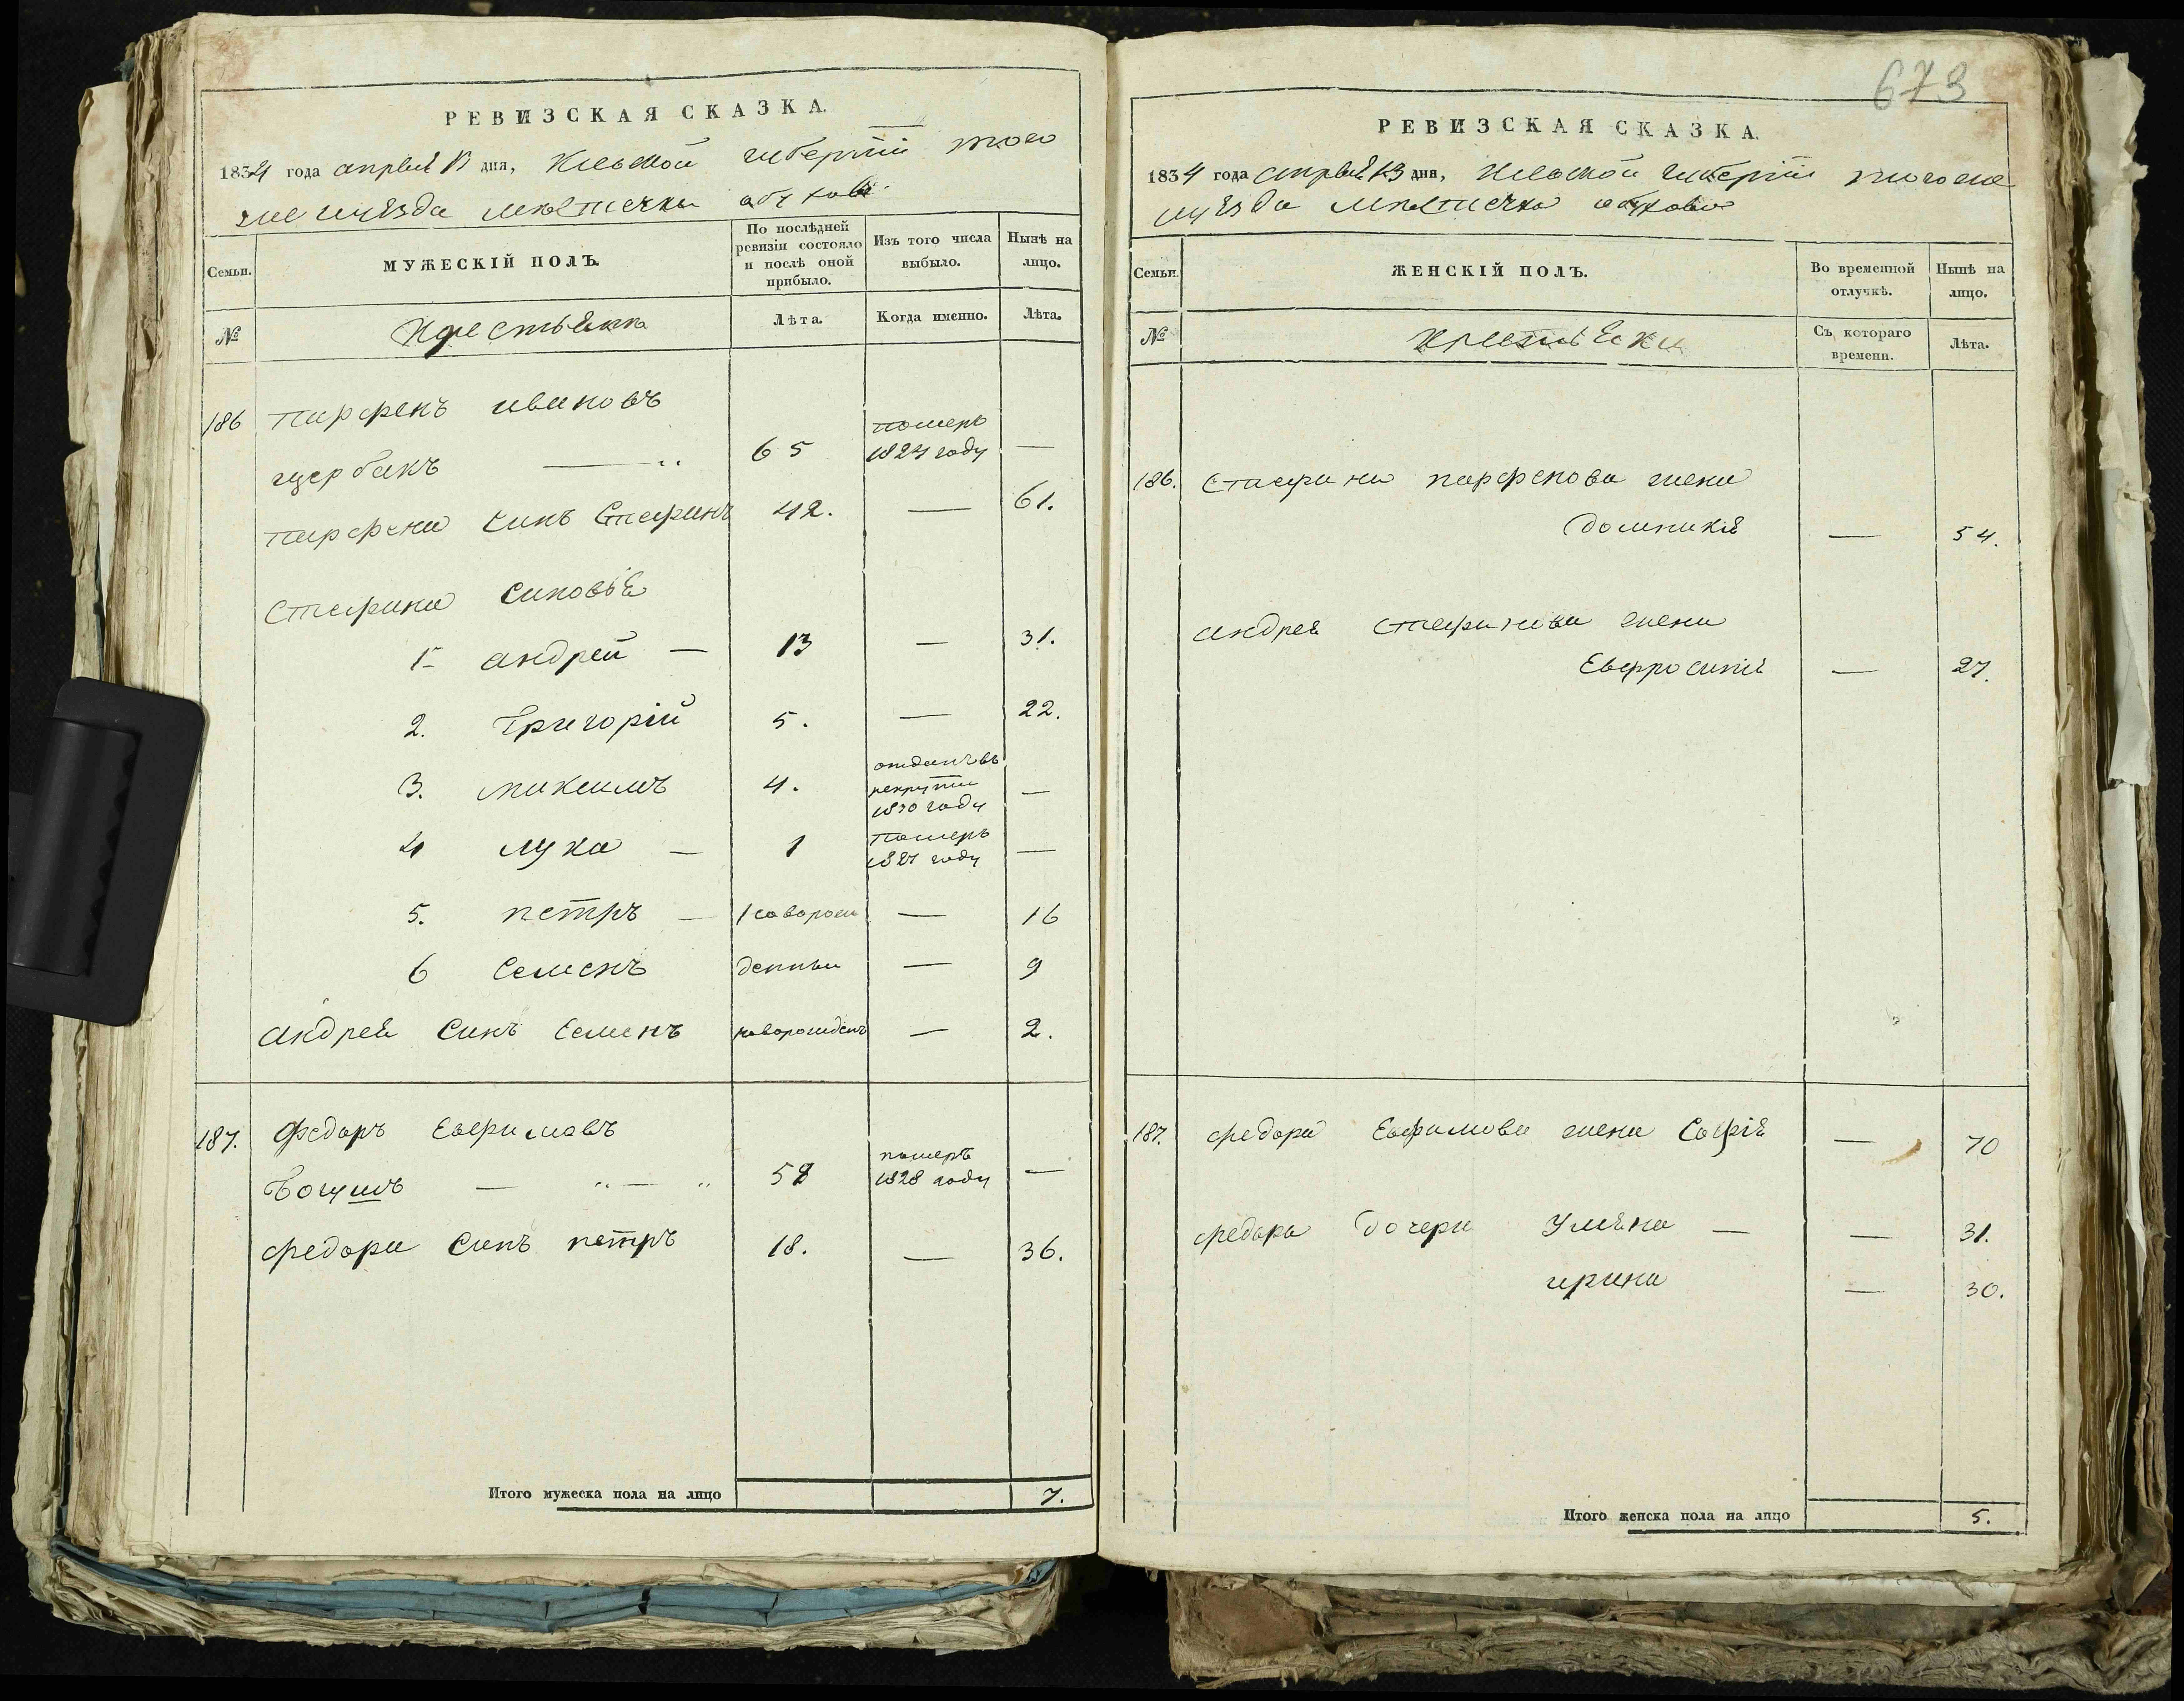 РЕВИЗСКАЯ СКАЗКА.
1834 года апреля 13 дня, Киевской губернiи того
же иуезда местечка абухова.
Семьи.
МУЖЕСКIЙ ПОЛЪ.
По послѣдней ревизiи состояло и послѣ оной прибыло.
Изъ того числа выбыло.
Нынѣ на лицо.
№
Крестьяня
Лѣта.
Когда именно.
Лѣта.
186 парфенъ ивановъ
щербакъ — 65 померъ 1824 году —
парфена синъ Стефанъ 42. — 61.
Стефана синовья
1 андрей — 13 — 31.
2. Григорiй 5. — 22.
3. максимъ 4. отданъ въ рекруты 1830 году —
4 лука — 1 померъ 1827 году —
5. петръ — новорож — 16
6 Семенъ денныи — 9
андрея синъ Семенъ новорожденъ — 2.
187. Федоръ Евфимовъ
Богушъ — 58 померъ 1828 году —
федора синъ петръ 18. — 36.
Итого мужеска пола на лицо 7.
673
РЕВИЗСКАЯ СКАЗКА.
1834 года апреля 13 дня, Киевской губернiи тогоже
иуезда местечка обухова
Семьи.
ЖЕНСКIЙ ПОЛЪ.
Во временной отлучкѣ.
Нынѣ на лицо.
№
крестьянки
Съ котораго времени.
Лѣта.
186. Стефана парфенова жена
домникiя — 54.
андрея Стефанова жена
Евфросинiя — 27.
187. федора Евфимова жена Софiя — 70
федора дочери Уляна — — 31.
ирина — 30.
Итого женска пола на лицо 5.